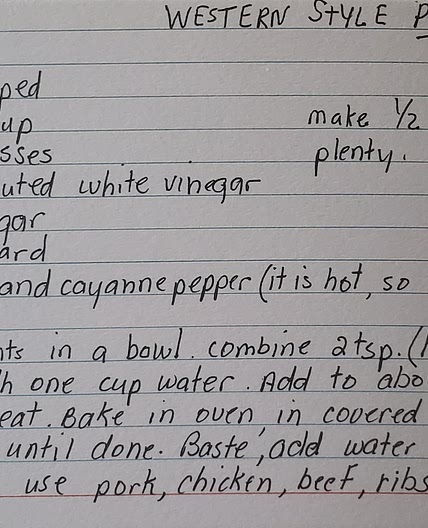 WESTERN STYLE P
ped
make 1/2
up
sses
plenty.
uted white vinegar
gar
ard
and cayanne pepper (it is hot, so
nts in a bowl. combine 2 tsp. (
h one cup water. Add to abo
eat. Bake in oven in covered
until done. Baste, add water
use pork, chicken, beef, ribs